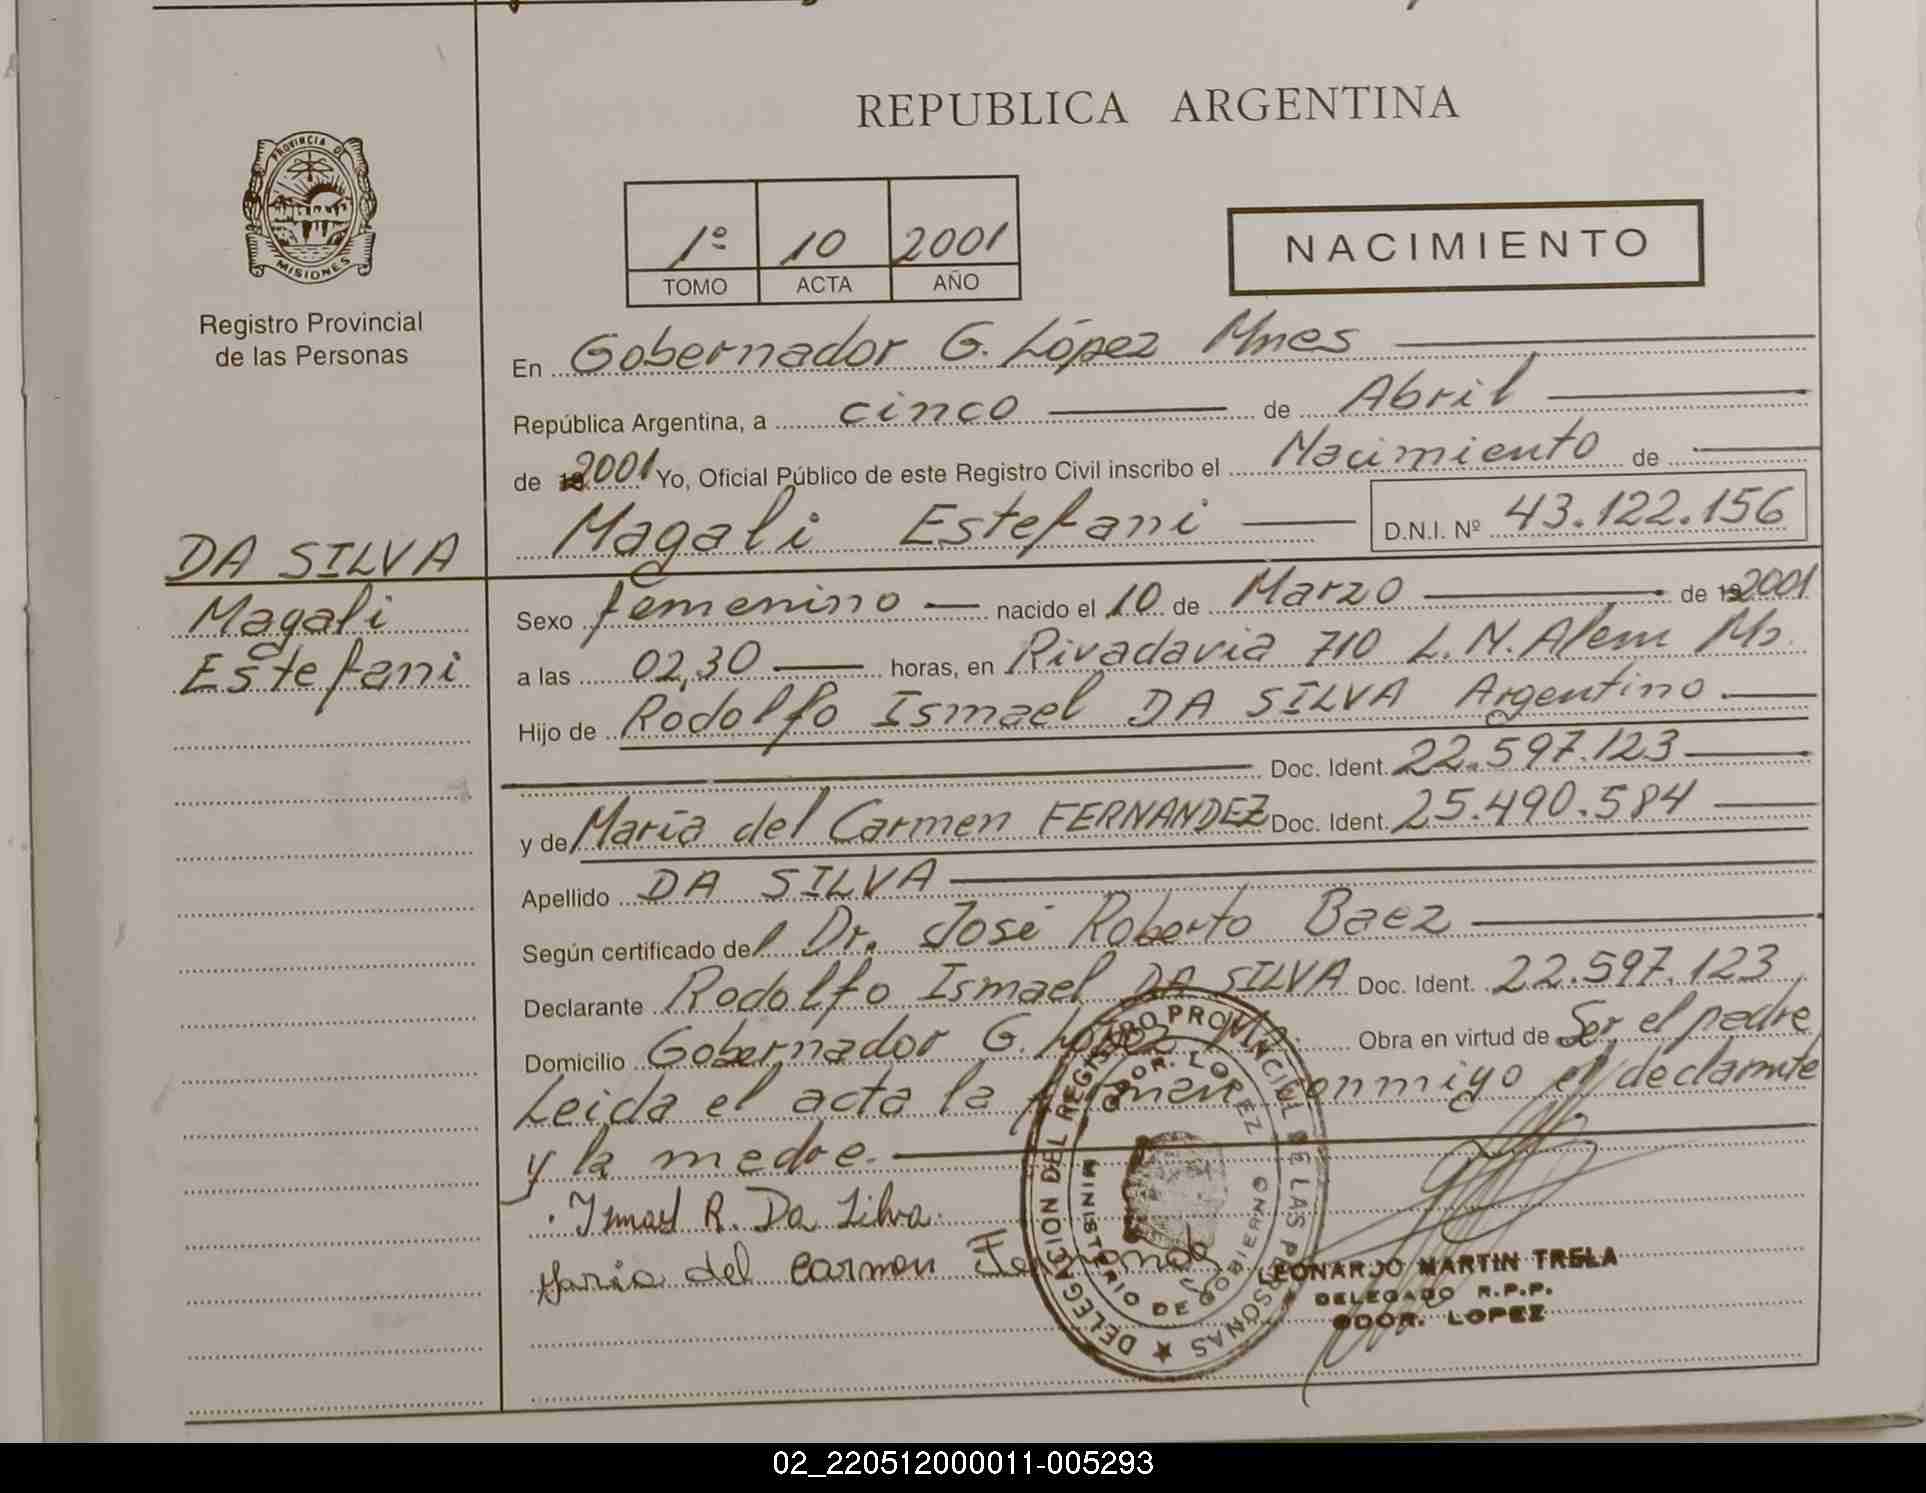 REPUBLICA ARGENTINA
PROVINCIA DE
MISIONES
Registro Provincial
de las Personas
1º 10 2001
TOMO ACTA AÑO
NACIMIENTO
En Gobernador G. López Mnes
República Argentina, a cinco de Abril
de 2001 Yo, Oficial Público de este Registro Civil inscribo el Nacimiento de
Magali Estefani D.N.I. Nº 43.122.156
DA SILVA
Magali
Estefani
Sexo femenino nacido el 10 de Marzo de 2001
a las 02,30 horas, en Rivadavia 710 L.N.Alem Ms.
Hijo de Rodolfo Ismael DA SILVA Argentino.
Doc. Ident. 22.597.123
y de María del Carmen FERNANDEZ Doc. Ident. 25.490.584
Apellido DA SILVA
Según certificado del Dr. José Roberto Baez
Declarante Rodolfo Ismael DA SILVA Doc. Ident. 22.597.123
Domicilio Gobernador G. López Obra en virtud de Ser el padre
Leida el acta la firman conmigo el declarante
y la madre.
Ismael R. Da Silva.
Maria del Carmen Fernandez
DELEGACION DEL REGISTRO PROVINCIAL DE LAS PERSONAS
GDOR. LOPEZ
MINISTERIO DE GOBIERNO
LEONARDO MARTIN TRELA
DELEGADO R.P.P.
GDOR. LOPEZ
02_220512000011-005293